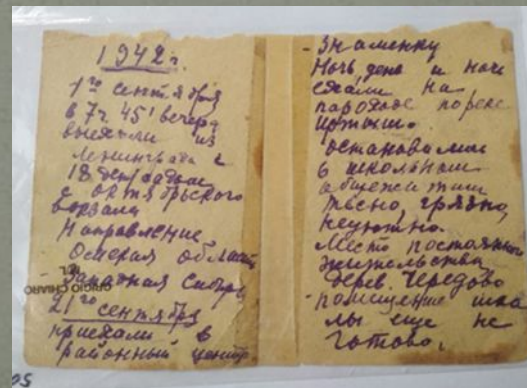 1942 г.
1го сентября
в 7ч 45' вечера
выехали из
Ленинграда с
18 дет/садом
с октябрьского
вокзала
Направление
Омская област
Западная Сибирь
21го сентября
приехали в
районный центр
- Знаменку
Ночь, день и ночь
ехали на
пароходе по реке
Иртышь.
остановились
в школьном
общежитии
тесно, грязно,
неуютно.
Мест постоянного
жительства
дерев. Чередово
- помещение шко
лы еще не
готово.
GRIGIO CHIARO
05